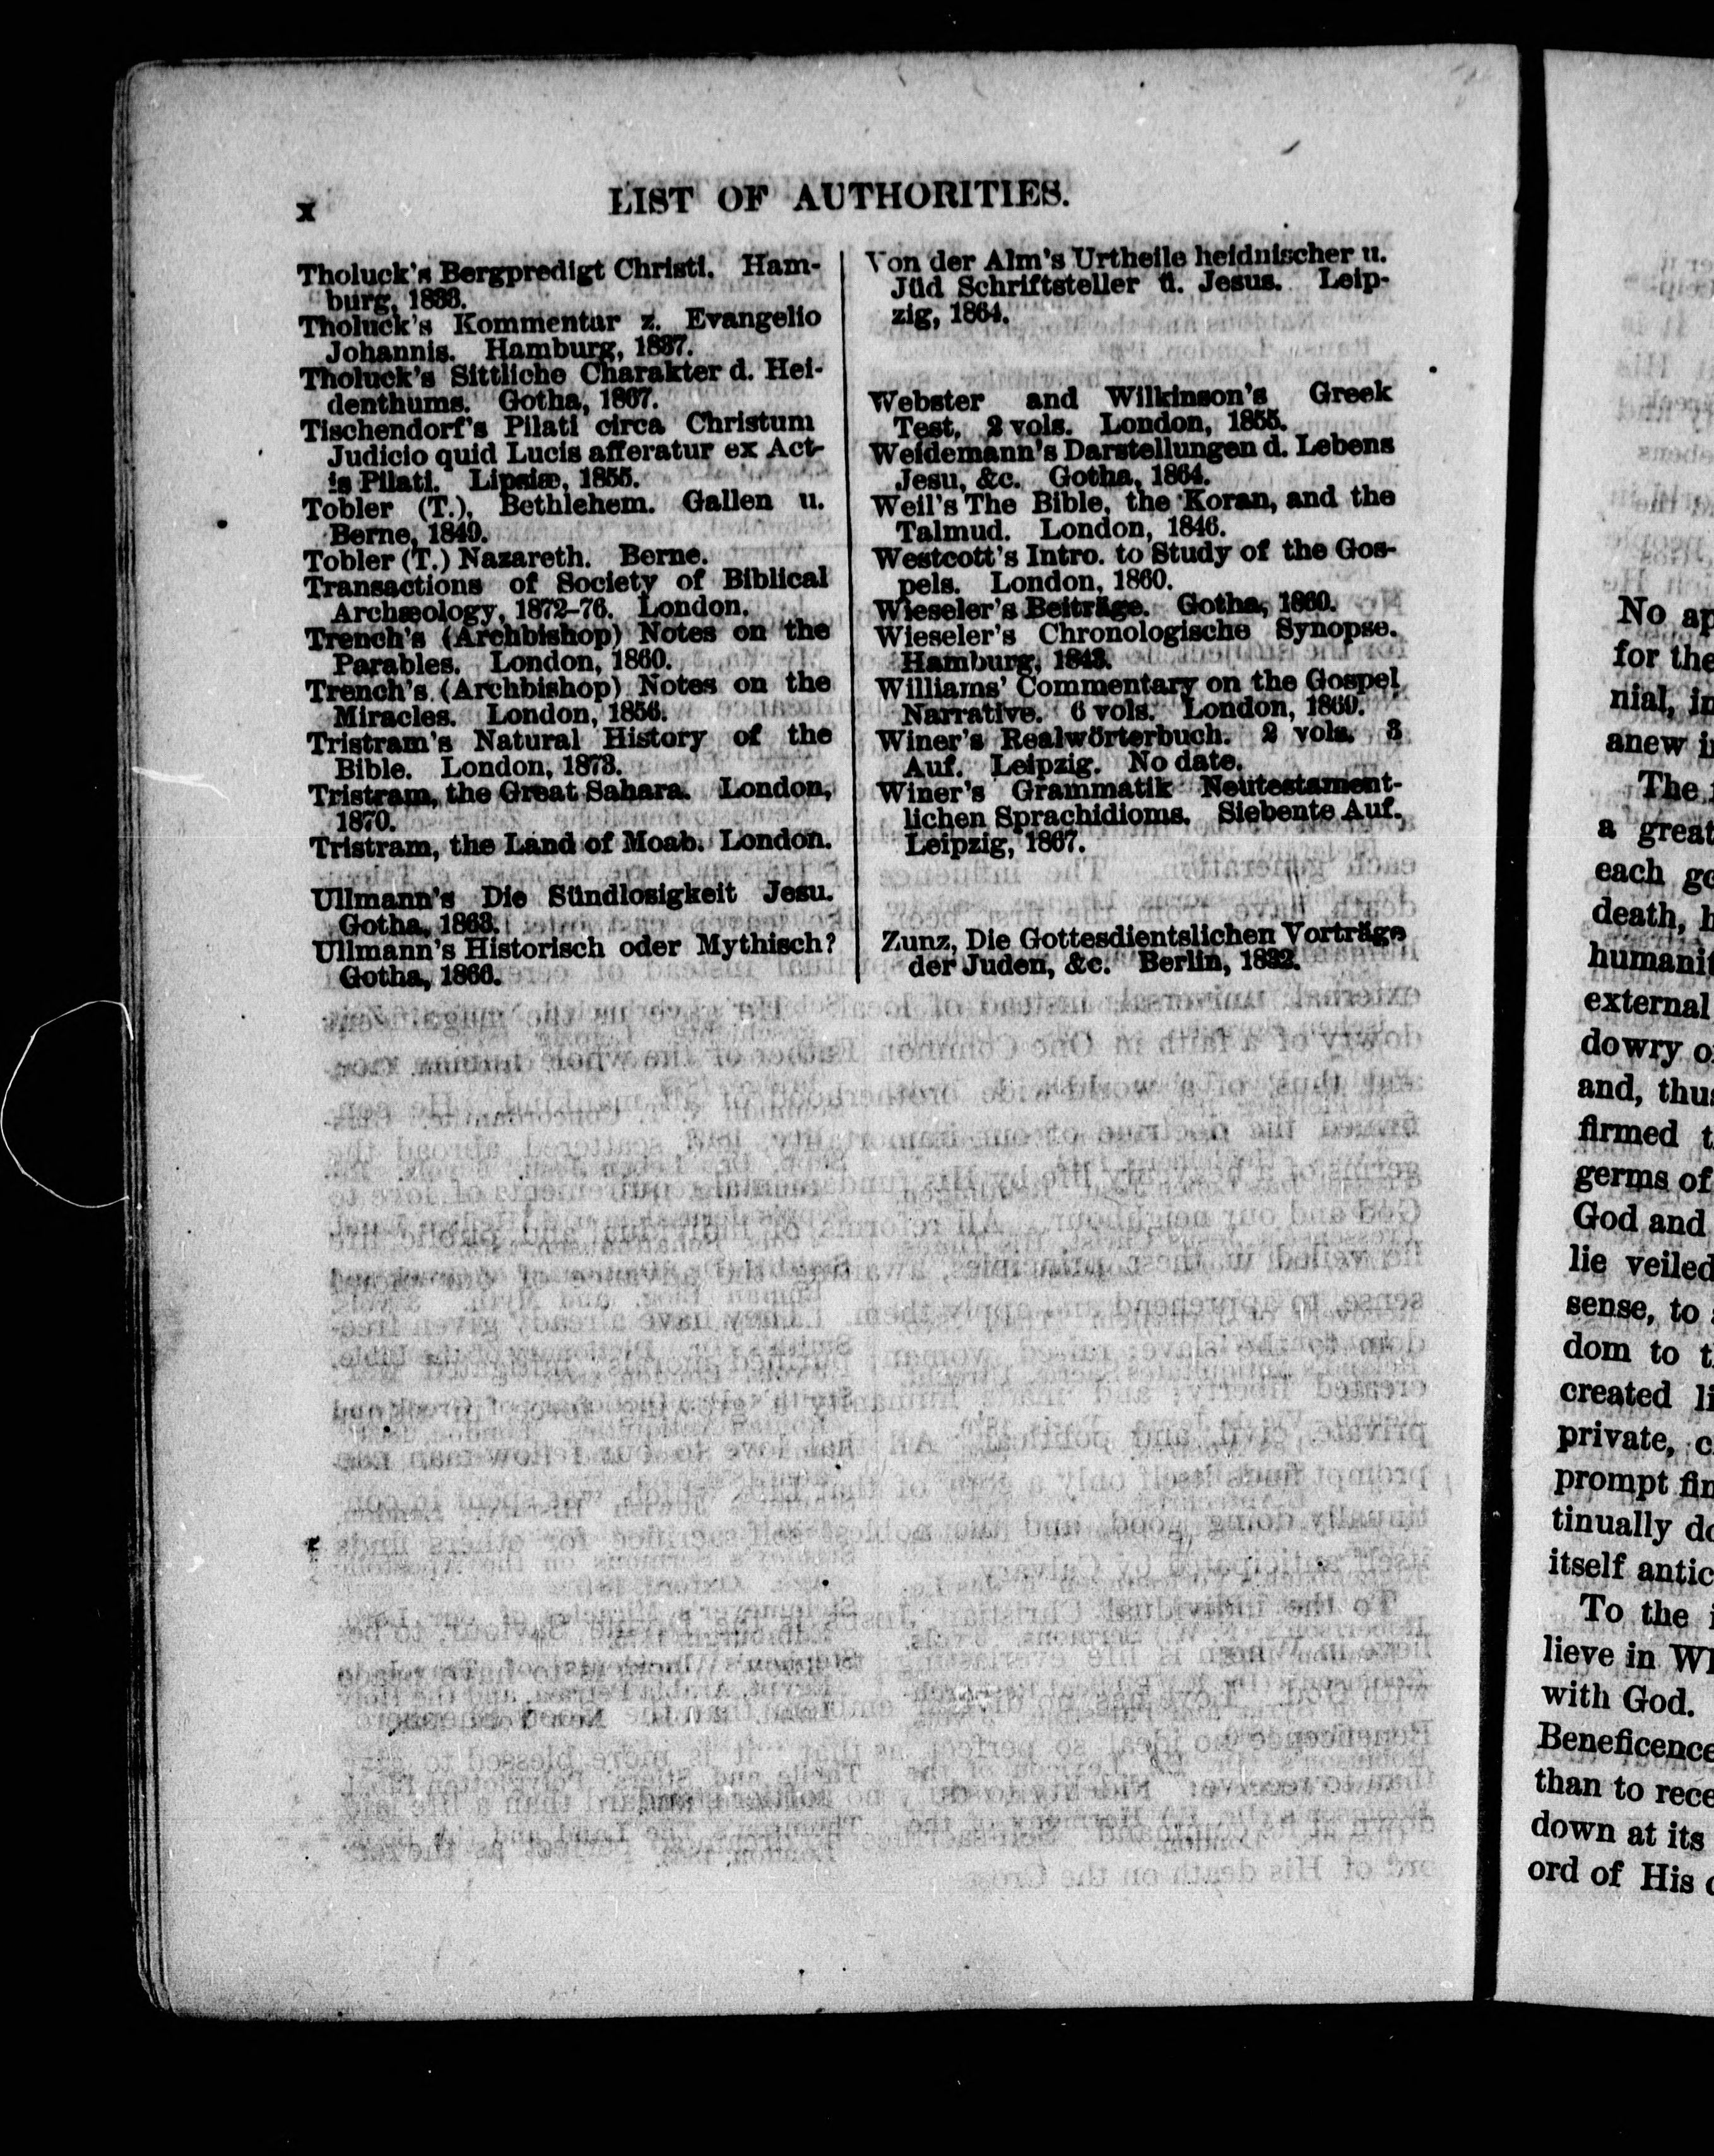 x
LIST OF AUTHORITIES.
Tholuck's Bergpredigt Christi. Ham-
burg, 1833.
Tholuck's Kommentar z. Evangelio
Johannis. Hamburg, 1837.
Tholuck's Sittliche Charakter d. Hei-
denthums. Gotha, 1867.
Tischendorf's Pilati circa Christum
Judicio quid Lucis afferatur ex Act-
is Pilati. Lipsiæ, 1855.
Tobler (T.), Bethlehem. Gallen u.
Berne, 1849.
Tobler (T.) Nazareth. Berne.
Transactions of Society of Biblical
Archæology, 1872-76. London.
Trench's (Archbishop) Notes on the
Parables. London, 1860.
Trench's (Archbishop) Notes on the
Miracles. London, 1856.
Tristram's Natural History of the
Bible. London, 1873.
Tristram, the Great Sahara. London,
1870.
Tristram, the Land of Moab. London.
Ullmann's Die Sündlosigkeit Jesu.
Gotha, 1863.
Ullmann's Historisch oder Mythisch?
Gotha, 1866.
Von der Alm's Urtheile heidnischer u.
Jüd Schriftsteller ü. Jesus. Leip-
zig, 1864.
Webster and Wilkinson's Greek
Test. 2 vols. London, 1855.
Weidemann's Darstellungen d. Lebens
Jesu, &c. Gotha, 1864.
Weil's The Bible, the Koran, and the
Talmud. London, 1846.
Westcott's Intro. to Study of the Gos-
pels. London, 1860.
Wieseler's Beiträge. Gotha, 1860.
Wieseler's Chronologische Synopse.
Hamburg, 1843.
Williams' Commentary on the Gospel
Narrative. 6 vols. London, 1869.
Winer's Realwörterbuch. 2 vols. 3
Auf. Leipzig. No date.
Winer's Grammatik Neutestament-
lichen Sprachidioms. Siebente Auf.
Leipzig, 1867.
Zunz, Die Gottesdientslichen Vorträge
der Juden, &c. Berlin, 1832.
No ap
for the
nial, in
anew i
The
a great
each ge
death, h
humanit
external
dowry o
and, thus
firmed t
germs of
God and
lie veiled
sense, to
dom to t
created li
private, c
prompt fin
tinually do
itself antic
To the i
lieve in Wh
with God.
Beneficence
than to rece
down at its
ord of His